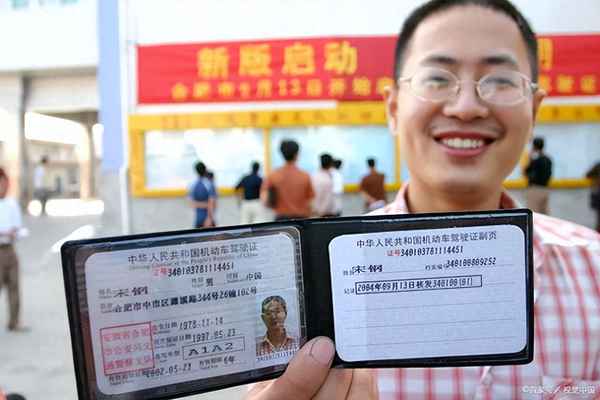 新版启动
合肥市9月13日开始启
驾驶证
中华人民共和国机动车驾驶证
Driving License of the People's Republic of China
证号 340103781114451
姓名 宋钢
性别 男 国籍 中国
住址 合肥市中市区濉溪路344号26幢102号
出生日期 1978-11-14
初次领证日期 1997-05-23
准驾车型 A1A2
有效起始日期 2002-05-23 有效期限 6年
安徽省合肥
市公安局交
通警察支队
中华人民共和国机动车驾驶证副页
证号 340103781114451
姓名 宋钢
档案编号 340100809252
记录 2004年09月13日核发340100(01)
百家号/视觉中国